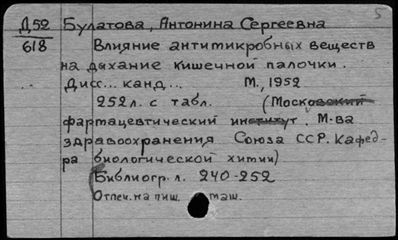 5
Д52 Булатова, Антонина Сергеевна
618
Влияние антимикробных веществ
на дыхание кишечной палочки.
Дисс... канд... М., 1952
252л. с табл. (Московский
фармацевтический институт. М-ва
здравоохранения Союза ССР. Кафед-
ра биологической химии)
Библиогр. л. 240-252
Отпеч. на пиш. маш.